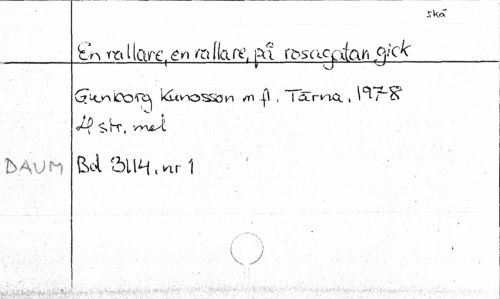 skä
En rallare, en rallare, på rosagatan gick
Gunborg Kunosson m fl. Tärna, 1978
4 str, mel
DAUM Bd 3114, nr 1